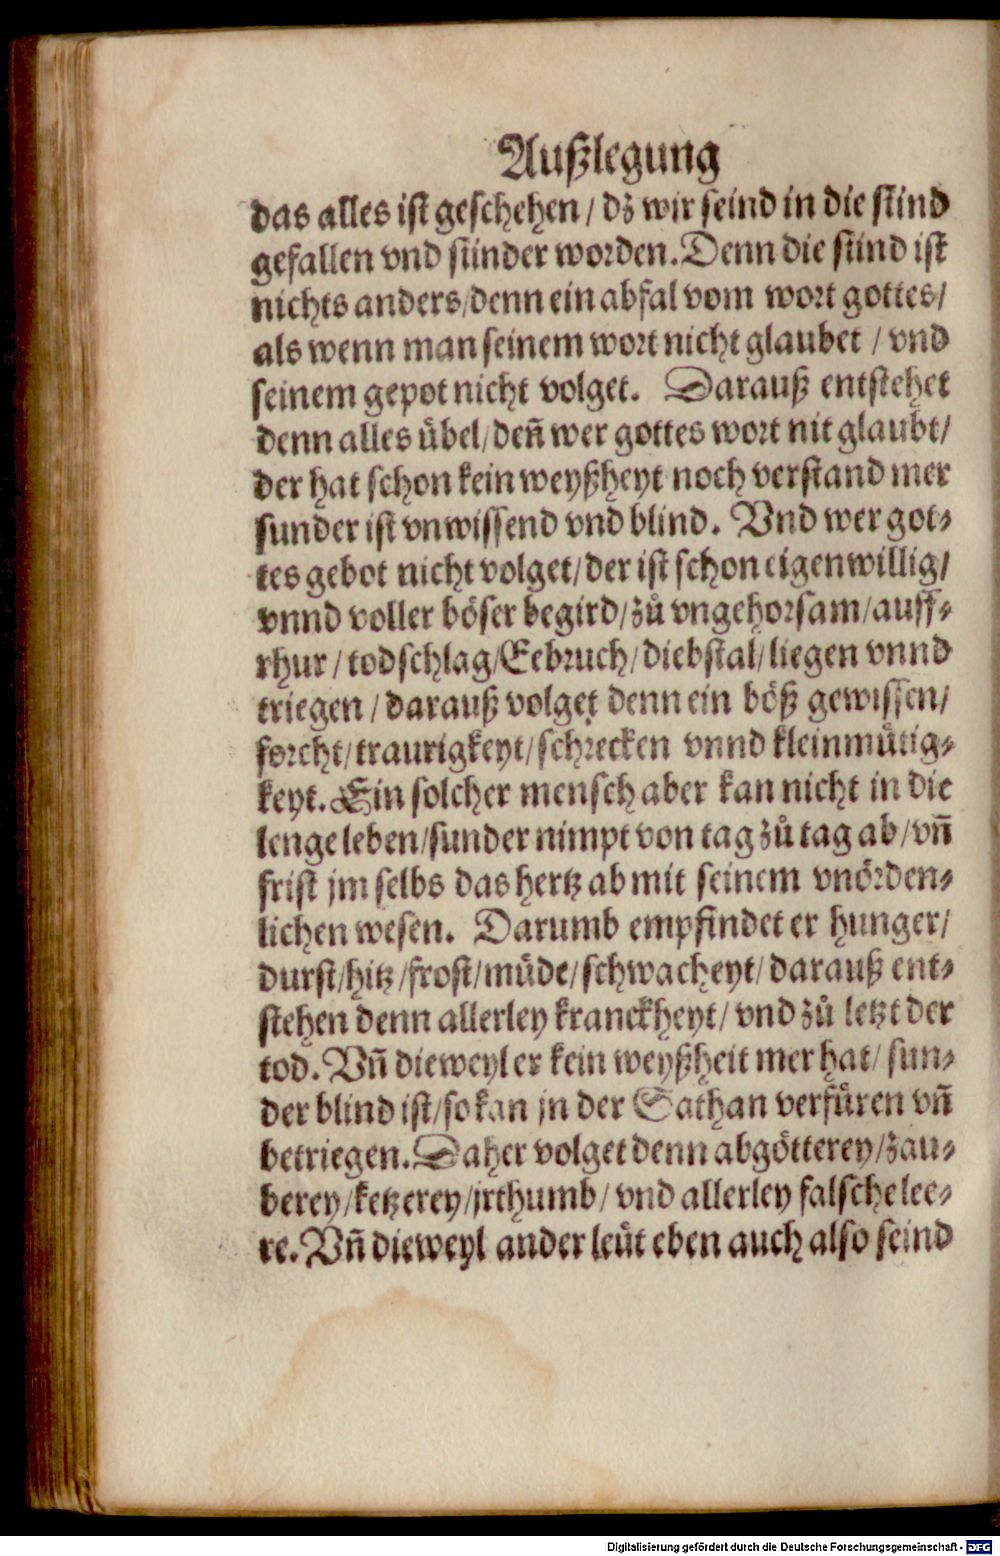 Außlegung
das alles ist geschehen / dz wir seind in die sünd
gefallen vnd sünder worden. Denn die sünd ist
nichts anders / denn ein abfal vom wort gottes /
als wenn man seinem wort nicht glaubet / vnd
seinem gepot nicht volget. Darauß entstehet
denn alles übel / deñ wer gottes wort nit glaubt /
der hat schon kein weyßheyt noch verstand mer
sunder ist vnwissend vnd blind. Vnd wer got⸗
tes gebot nicht volget / der ist schon eigenwillig /
vnnd voller böser begird / zů vngehorsam / auff⸗
rhur / todschlag / Eebruch / diebstal / liegen vnnd
triegen / darauß volget denn ein böß gewissen /
forcht / traurigkeyt / schrecken vnnd kleinmütig⸗
keyt. Ein solcher mensch aber kan nicht in die
lenge leben / sunder nimpt von tag zů tag ab / vñ
frist jm selbs das hertz ab mit seinem vnörden⸗
lichen wesen. Darumb empfindet er hunger /
durst / hitz / frost / müde / schwacheyt / darauß ent⸗
stehen denn allerley kranckheyt / vnd zů letzt der
tod. Vñ dieweyl er kein weyßheit mer hat / sun⸗
der blind ist / so kan jn der Sathan verfüren vñ
betriegen. Daher volget denn abgötterey / zau⸗
berey / ketzerey / jrthumb / vnd allerley falsche lee⸗
re. Vñ dieweyl ander leüt eben auch also seind
Digitalisierung gefördert durch die Deutsche Forschungsgemeinschaft - DFG